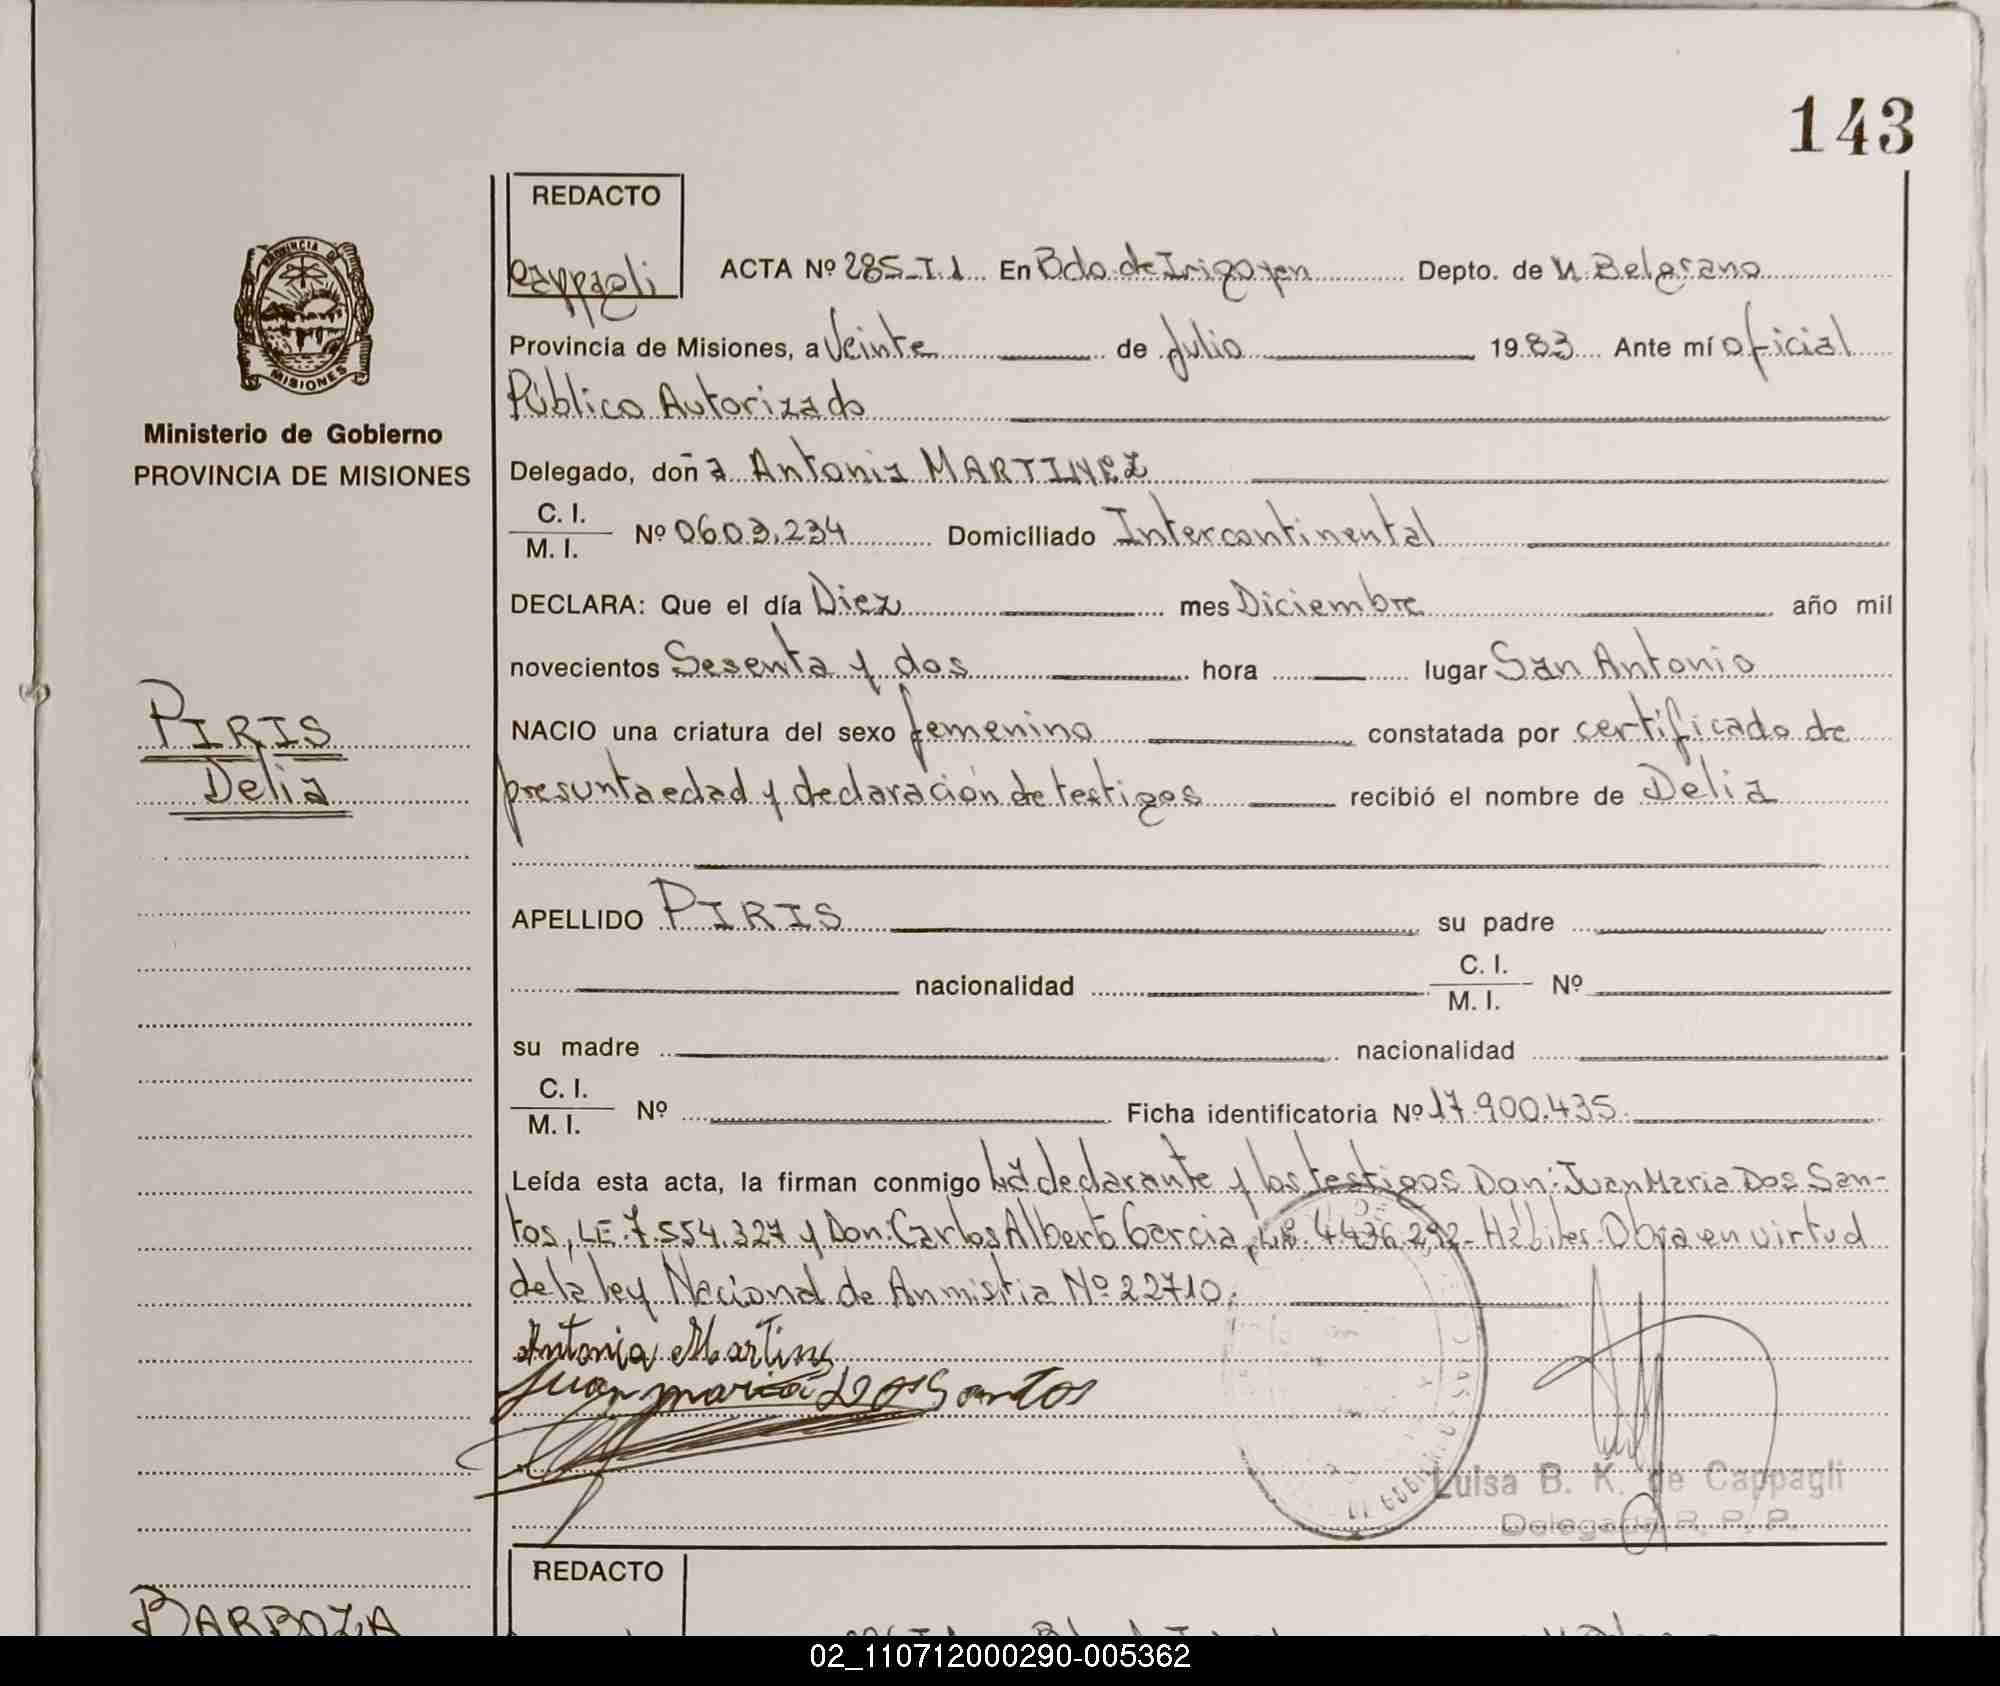 143
REDACTO
Cappagli
PROVINCIA DE
MISIONES
Ministerio de Gobierno
PROVINCIA DE MISIONES
ACTA Nº 285-T.1 En Bdo. de Irigoyen Depto. de M. Belgrano
Provincia de Misiones, a Veinte de Julio 1983 Ante mí oficial
Público Autorizado
Delegado, doña Antonia MARTINEZ
C. I.
M. I.
Nº 0603.234 Domiciliado Intercontinental
DECLARA: Que el día Diez mes Diciembre año mil
novecientos Sesenta y dos hora lugar San Antonio
PIRIS
Delia
NACIO una criatura del sexo femenino constatada por certificado de
presunta edad y declaración de testigos recibió el nombre de Delia
APELLIDO PIRIS su padre
nacionalidad C. I.
M. I. Nº
su madre nacionalidad
C. I.
M. I. Nº Ficha identificatoria Nº 17.900.435
Leída esta acta, la firman conmigo La declarante y los testigos Don: Juan Maria Dos San-
tos, LE. 7.554.327 y Don: Carlos Alberto Garcia, LE. 4.436.292- Hábiles. Obra en virtud
de la ley Nacional de Anmistia Nº 22710.
Antonia Martins
Juan maria Dos Santos
Luisa B. K. de Cappagli
Delegada R. P. P.
REDACTO
BARBOZA
02_110712000290-005362